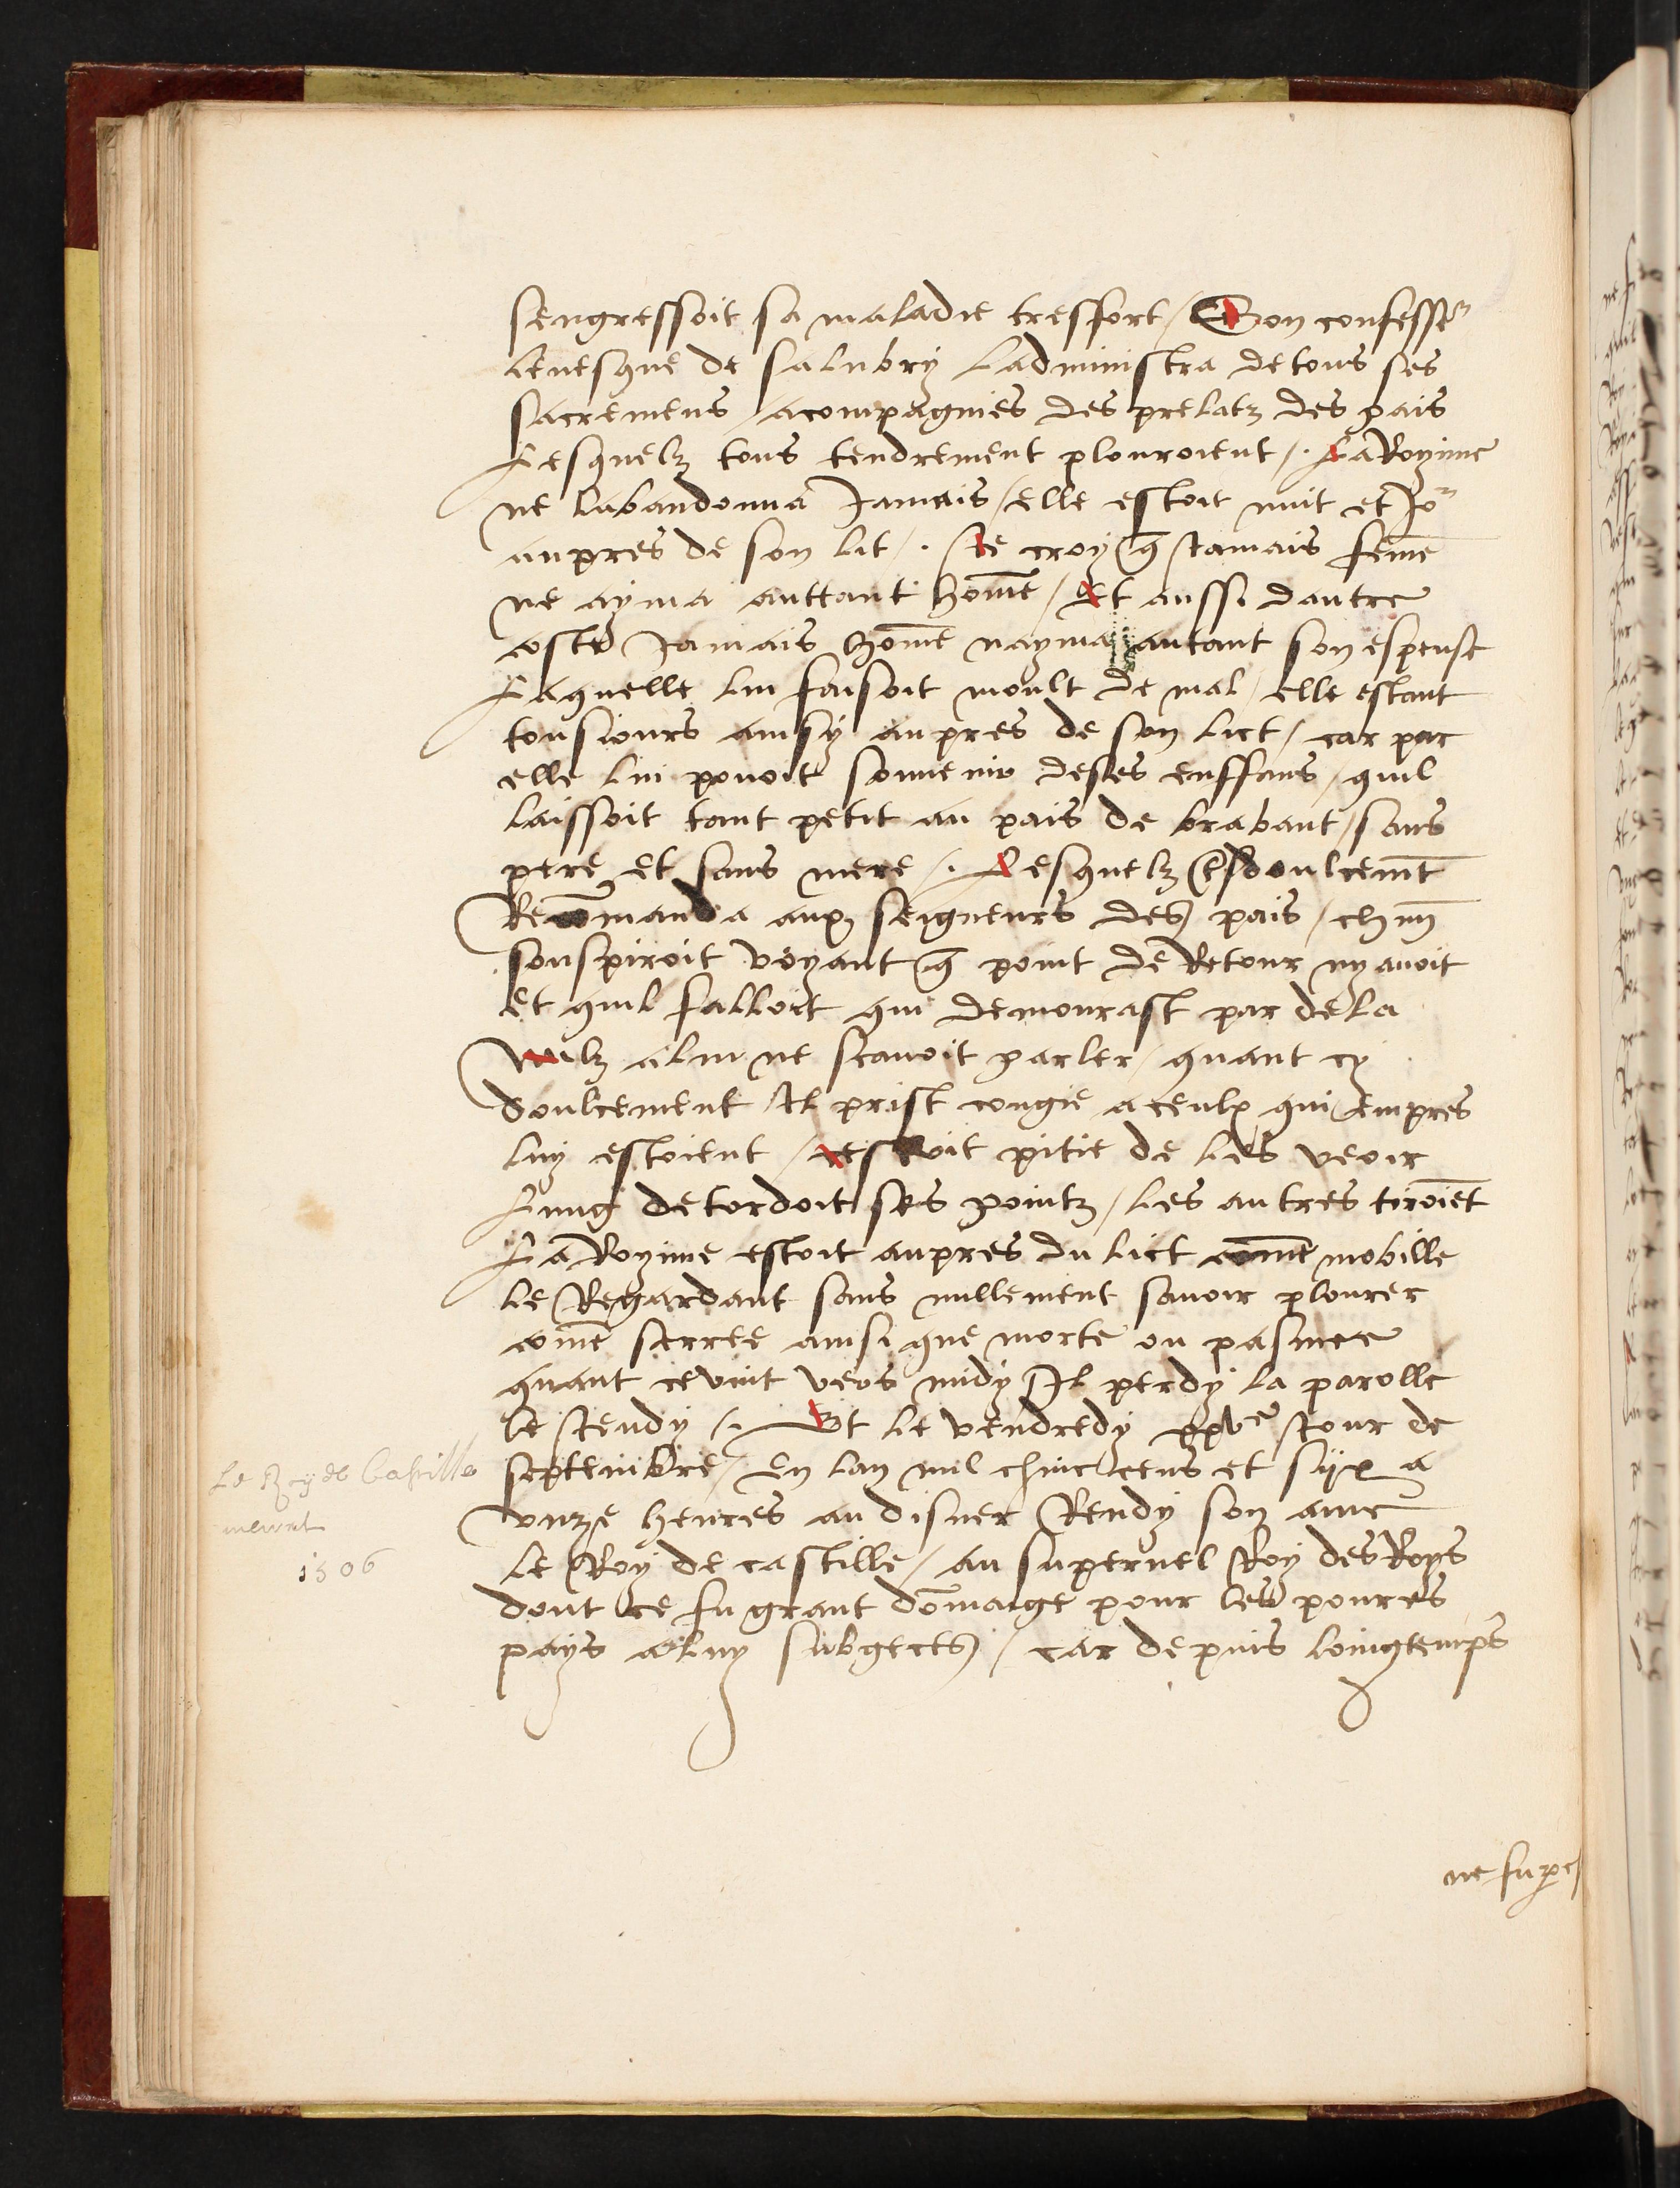 sengressoit sa maladie tresfort / Son confesse᷑
leuesque de salubrÿ ladministra de tous ses
sacremens / acompagnies des prelatz des pais
Lesquelz tous tendrement plouroient /. La Royinne
ne labandonna Jamais / elle estoit nuit et Jo᷑
aupres de son lit /. Je croy q̄ Jamais fēme
ne ayma auttant hōme / Et aussi dautre
coste Jamais hōme nayma autant son espeuse
Laquelle lui faisoit moult de mal / elle estant
tousiours ainsÿ aupres de son lict / car par
elle lui pouoit souuenir de ses enffans / quil
laissoit tant petit au pais de brabant / sans
pere et sans mere /. Lesquelz doulcemt̄
Recōmanda aux seigneurs des pais / chūn
souspiroit voyant q̄ point de Retour ny auoit
et quil falloit qui demourast par dela
Nulz a lui ne scauoit parler / quant cy
doulcement Il prist congie a ceulx qui empres
luy estoient / cestoit pitie de les veoir
Lung detordoit ses pointz / les autres tiroiēt
La Royinne estoit aupres du lict cōme mobille
le Regardant sans nullement sauoir plourer
cōme serree ainsi que morte ou pasmee
quant ce vint vers midy Il perdy la parolle
le Jeudy /. Et le vendredy xxve Jour de
septembre / en lan mil chinc cens et syx a
vnze heures au disner Rendy son ame
le Roy de castille / au supernel Roy des Roys
dont ce fu grant dōmaige pour les poures
pays a luy subgects / car depuis loingtemps
Le Roy de Castille
meurt
1506
ne fu